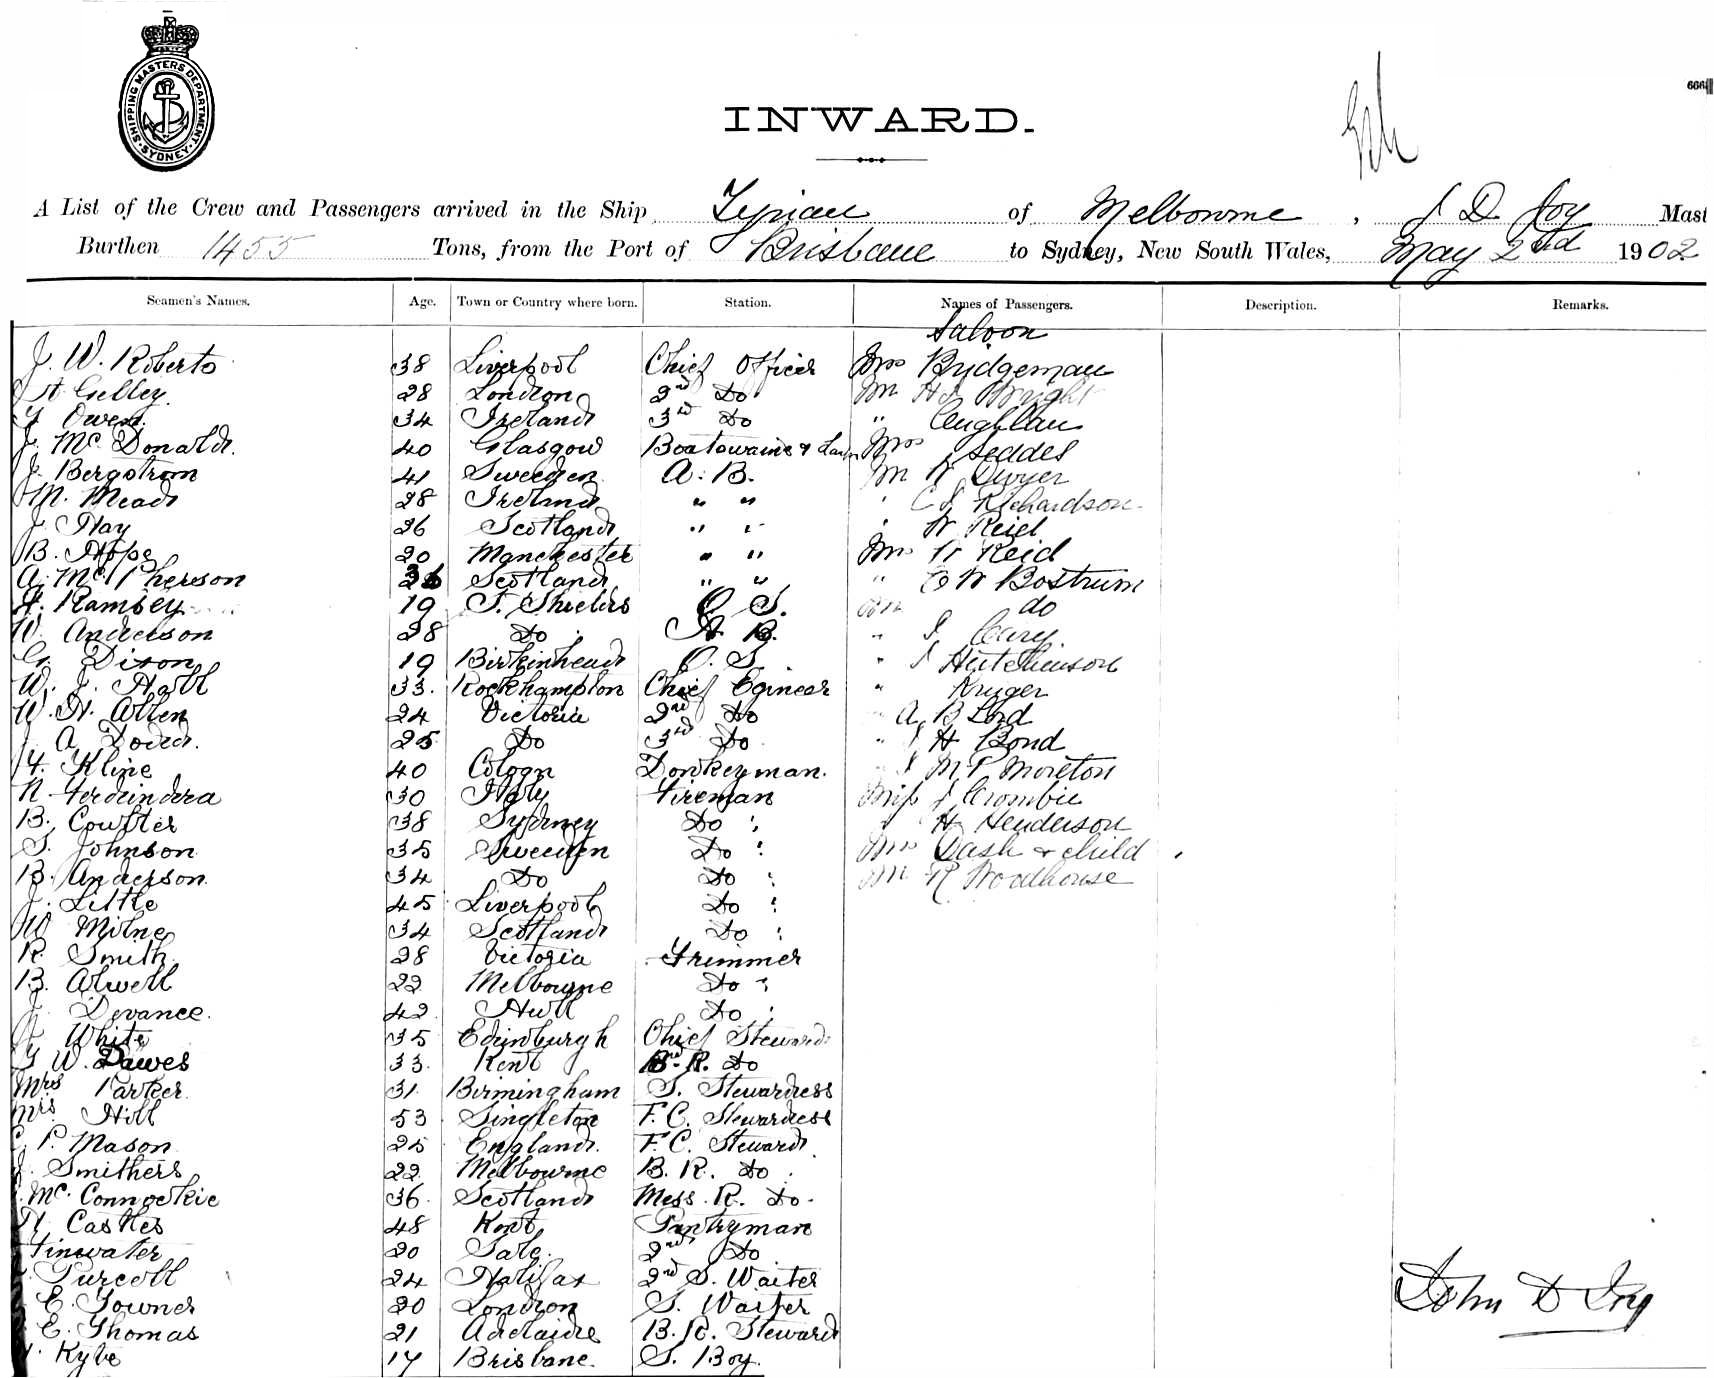 SHIPPING MASTERS DEPARTMENT. SYDNEY
666
INWARD.
A List of the Crew and Passengers arrived in the Ship Tyrian of Melbourne, J D Joy Mast
Burthen 1455 Tons, from the Port of Brisbane to Sydney, New South Wales, May 2nd 1902
Seamen's Names. Age. Town or Country where born. Station. Names of Passengers. Description. Remarks.
Saloon
J. W. Roberts 38 Liverpool Chief Officer Mrs Bridgeman
Gelley 28 London 2nd Do Mr Wright
Owen 34 Ireland 3rd Do " Coughlan
J. McDonald. 40 Glasgow Boatswaine & Lam Mrs Seddes
J. Bergstrom 41 Sweeden A. B. Mr W Dwyer
M. Mead 28 Ireland " " " C J Richardson
J. Hay 26 Scotland " " " W Reid
B. Hope 20 Manchester " " Mrs W Reid
A. McPherson Scotland " " " E W Bostrum
H. Ramsey 19 S. Shields O. S. do
W. Anderson 28 Do A. B. " J. Carey.
G. Dixon 19 Birkinhead O. S. " J Hutchinson
W. J. Hall 33. Rockhampton Chief Egineer " Kruger
W. H. Allen 24 Victoria 2nd Do " A B Lord
J. A Dodd. 25 Do 3rd Do " J H Bond
H. Kline 40 Cologn Donkeyman. M P Moreton
N. 30 Italy Fireman Miss J Crombie
B. Coulter 38 Sydney Do " " H Henderson
S. Johnson 35 Sweeden Do " Mrs Dash & child
B. Anderson 34 Do Do " Mr R Woodhouse
J. Little 45 Liverpool Do "
W Milne 34 Scotland Do "
R. Smith 28 Victoria Trimmer
B. Atwell 22 Melbourne Do "
J. Devance. 42 Hull Do "
White 35 Edinburgh Chief Steward
W. Dawes 33. Kent R. Do
Mrs Parker 31. Birmingham S. Stewardess
Mrs Hill 53 Singleton F. C. Stewardess
C. P. Mason 25 England. F. C. Steward
J. Smithers 22 Melbourne B. R. Do
McConnockie 36 Scotland Mess. R. Do.
H Castles 48 Kent Pantryman
Tinwater 20 Sale. 2nd Do
Purcell 24 Halifax 2nd S. Waiter
E. Towner 20 London S. Waiter
E. Thomas 21 Adelaide B. R. Steward
Kybe 17 Brisbane. S. Boy.
John D Joy